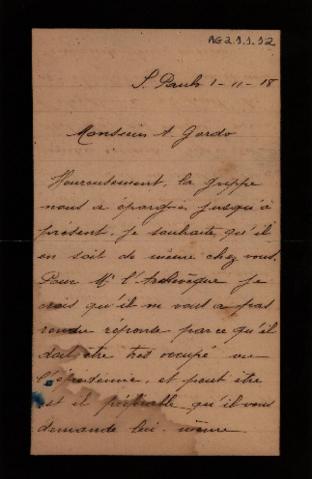 AG2.1.1.12
S. Paulo 1-11-18
Monsieur A. Gordo
Heureusement, la grippe
nous a épargnés jusqu'à
présent, je souhaite qu'il
en soit de même chez vous.
Pour Mr l'Archevêque je
crois qu'il ne vous a pas
rendu réponse parce qu'il
doit être très occupé vu
l'épidémie, et peut être
est il préférable qu'il vous
demande lui-même